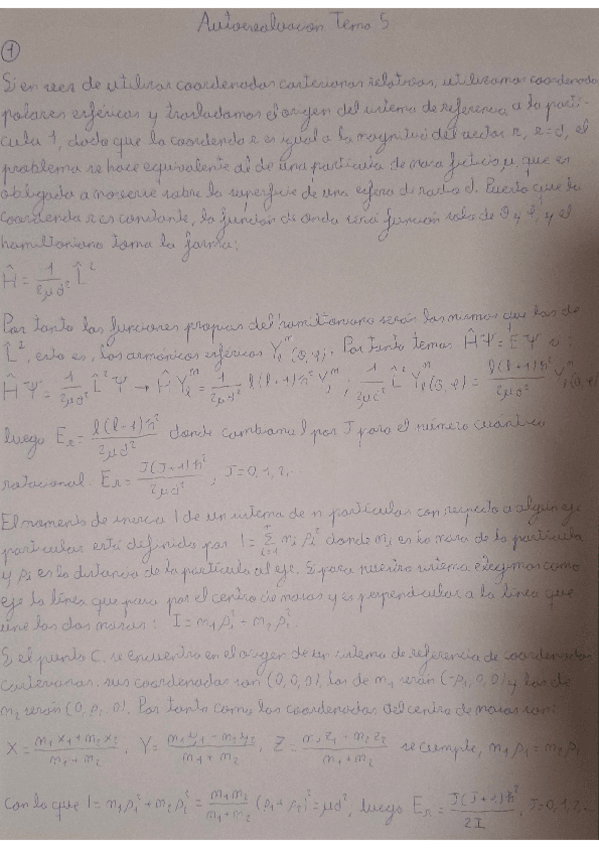 Autoevaluación Tema 5
①
Si en vez de utilizar coordenadas cartesianas relativas, utilizamos coordenadas
polares esféricas y trasladamos el origen del sistema de referencia a la partí-
cula 1, dado que la coordenda r es igual a la magnitud del vector r, r=d, el
problema se hace equivalente al de una particula de masa ficticia μ que es
obligada a moverse sobre la superficie de una esfera de radio d. Puesto que la
coordenda r es constante, la función de onda será función solo de θ y φ, y el
hamiltoniano toma la forma:
Ĥ = 1/2μd² L̂²
Por tanto las funciones propias del hamiltoniano serán las mismas que las de
L̂², esto es, los armónicos esféricos Yₗᵐ(θ,φ). Por tanto temos ĤΨ = EΨ :
ĤΨ = 1/2μd² L̂²Ψ → ĤYₗᵐ = 1/2μd² l(l+1)ħ² Yₗᵐ ; 1/2μd² L̂² Yₗᵐ(θ,φ) = l(l+1)ħ²/2μd² Yₗᵐ(θ,φ)
luego Eᵣ = l(l+1)ħ²/2μd² donde cambiamos l por J para el número cuántico
rotacional. Eᵣ = J(J+1)ħ²/2μd² ; J=0,1,2...
El momento de inercia I de un sistema de n partículas con respecto a algún eje
particular está definido por I = Σⁿᵢ₌₁ mᵢρᵢ² donde mᵢ es la masa de la partícula
y ρᵢ es la distancia de la partícula al eje. Si para nuestro sistema elegimos como
eje la línea que pasa por el centro de masas y es perpendicular a la línea que
une las dos masas: I = m₁ρ₁² + m₂ρ₂².
Si el punto C. se encuentra en el origen de un sistema de referencia de coordenadas
cartesianas. sus coordenadas son (0,0,0), las de m₁ serán (-ρ₁,0,0) y las de
m₂ serán (0,ρ₂,0). Por tanto como las coordenadas del centro de masas son:
X = m₁x₁+m₂x₂/m₁+m₂ , Y = m₁y₁+m₂y₂/m₁+m₂ , Z = m₁z₁+m₂z₂/m₁+m₂ se cumple, m₁ρ₁ = m₂ρ₂
con lo que I = m₁ρ₁² + m₂ρ₂² = m₁m₂/m₁+m₂ (ρ₁+ρ₂)² = μd², luego Eᵣ = J(J+1)ħ²/2I , J=0,1,2...